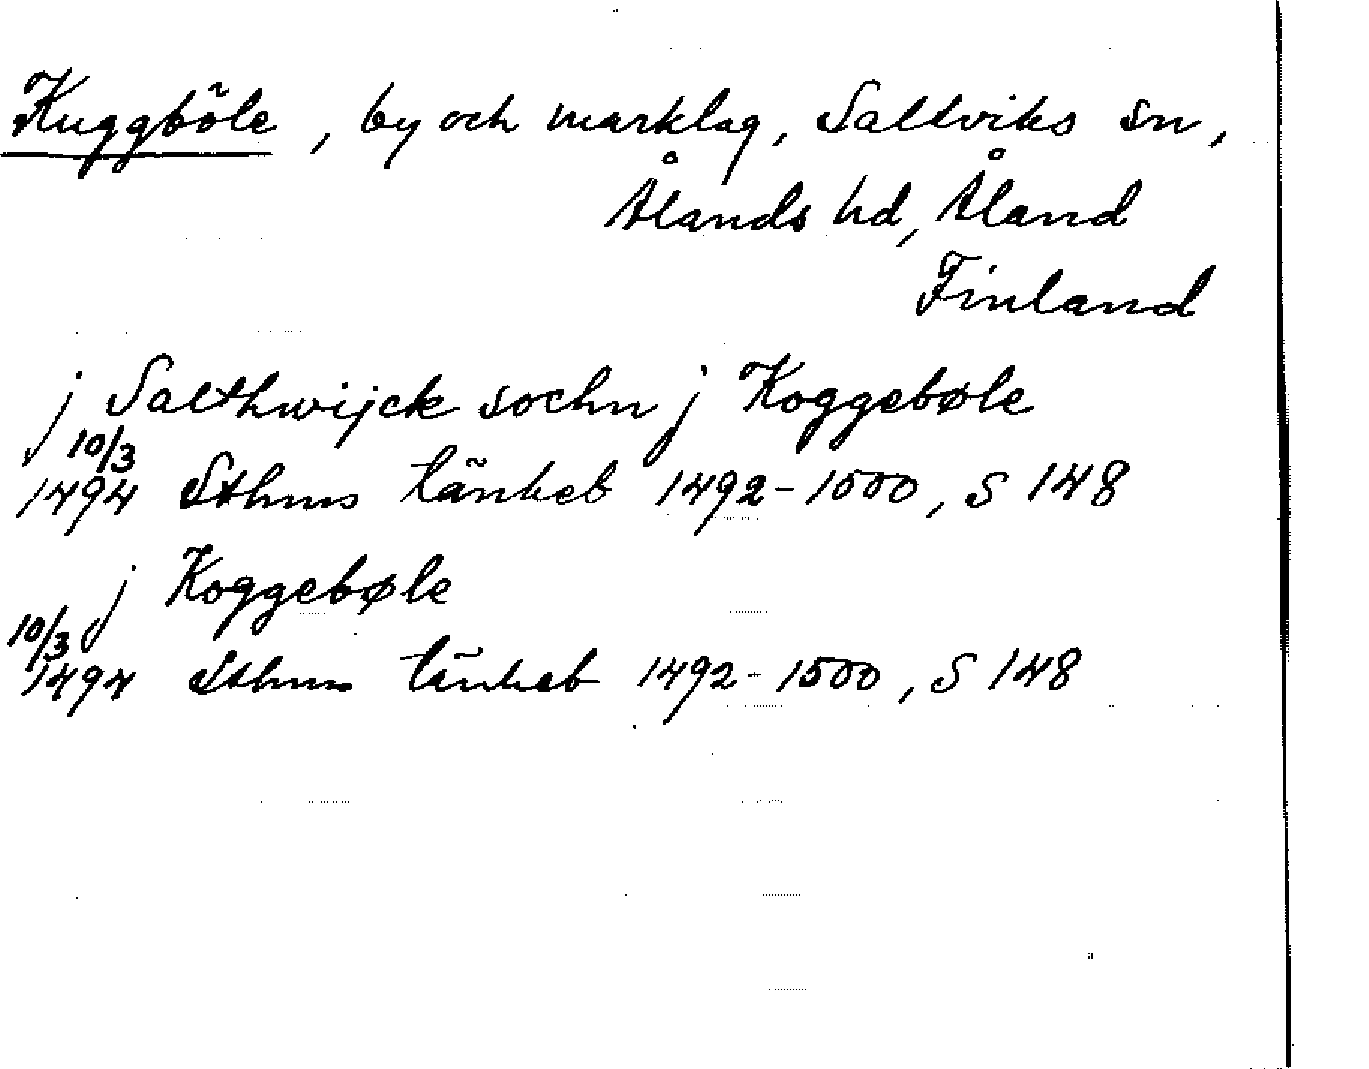 Kuggböle, by och marklag, Saltviks sn,
Ålands hd, Åland
Finland
j Salthwijck sochn j Koggebøle
10/3
1494 Sthms tänkeb 1492-1500, S 148
j Koggebøle
10/3
1494 Sthms tänkeb 1492-1500, S 148